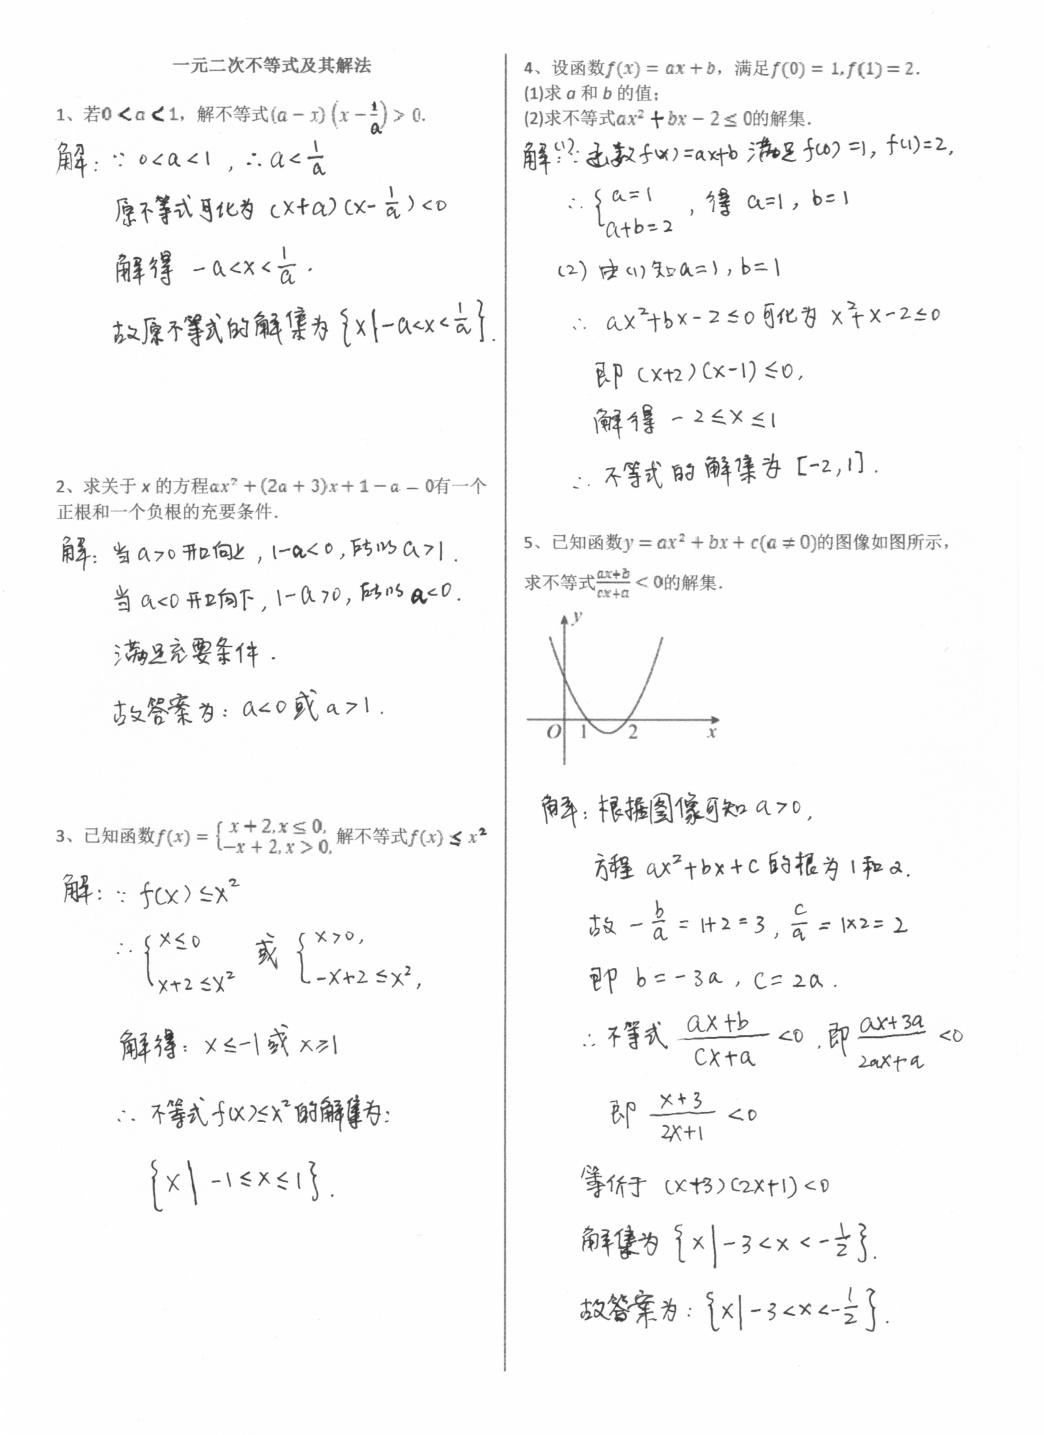 一元二次不等式及其解法
1、若0<a<1，解不等式(a−x)(x−1/a)>0.
解：∵ 0<a<1，∴a<1/a
原不等式可化为 (x+a)(x-1/a)<0
解得 -a<x<1/a.
故原不等式的解集为{x|-a<x<1/a}.
2、求关于 x 的方程ax²+(2a+3)x+1−a=0有一个
正根和一个负根的充要条件.
解：当a>0开口向上，1-a<0，所以a>1.
当a<0开口向下，1-a>0，所以a<0.
满足充要条件.
故答案为：a<0或a>1.
3、已知函数f(x)={x+2,x≤0, −x+2,x>0, 解不等式f(x)≤x²
解：∵ f(x)≤x²
∴{x≤0 x+2≤x² 或 {x>0, -x+2≤x²,
解得：x≤-1或x≥1
∴ 不等式f(x)≤x²的解集为：
{x|-1≤x≤1}.
4、设函数f(x)=ax+b，满足f(0)=1,f(1)=2.
(1)求 a 和 b 的值；
(2)求不等式ax²+bx−2≤0的解集.
解(1)∵函数f(x)=ax+b满足f(0)=1，f(1)=2，
∴{a=1 a+b=2，得 a=1，b=1
(2) 由(1)知a=1，b=1
∴ ax²+bx-2≤0可化为 x²+x-2≤0
即 (x+2)(x-1)≤0，
解得 -2≤x≤1
∴ 不等式的解集为[-2,1].
5、已知函数y=ax²+bx+c(a≠0)的图像如图所示，
求不等式(ax+b)/(cx+a)<0的解集.
y
O 1 2 x
解：根据图像可知a>0，
方程ax²+bx+c的根为1和2.
故 -b/a=1+2=3，c/a=1×2=2
即 b=-3a，c=2a.
∴不等式 (ax+b)/(cx+a)<0，即(ax+3a)/(2ax+a)<0
即 (x+3)/(2x+1)<0
等价于 (x+3)(2x+1)<0
解集为{x|-3<x<-1/2}.
故答案为：{x|-3<x<-1/2}.